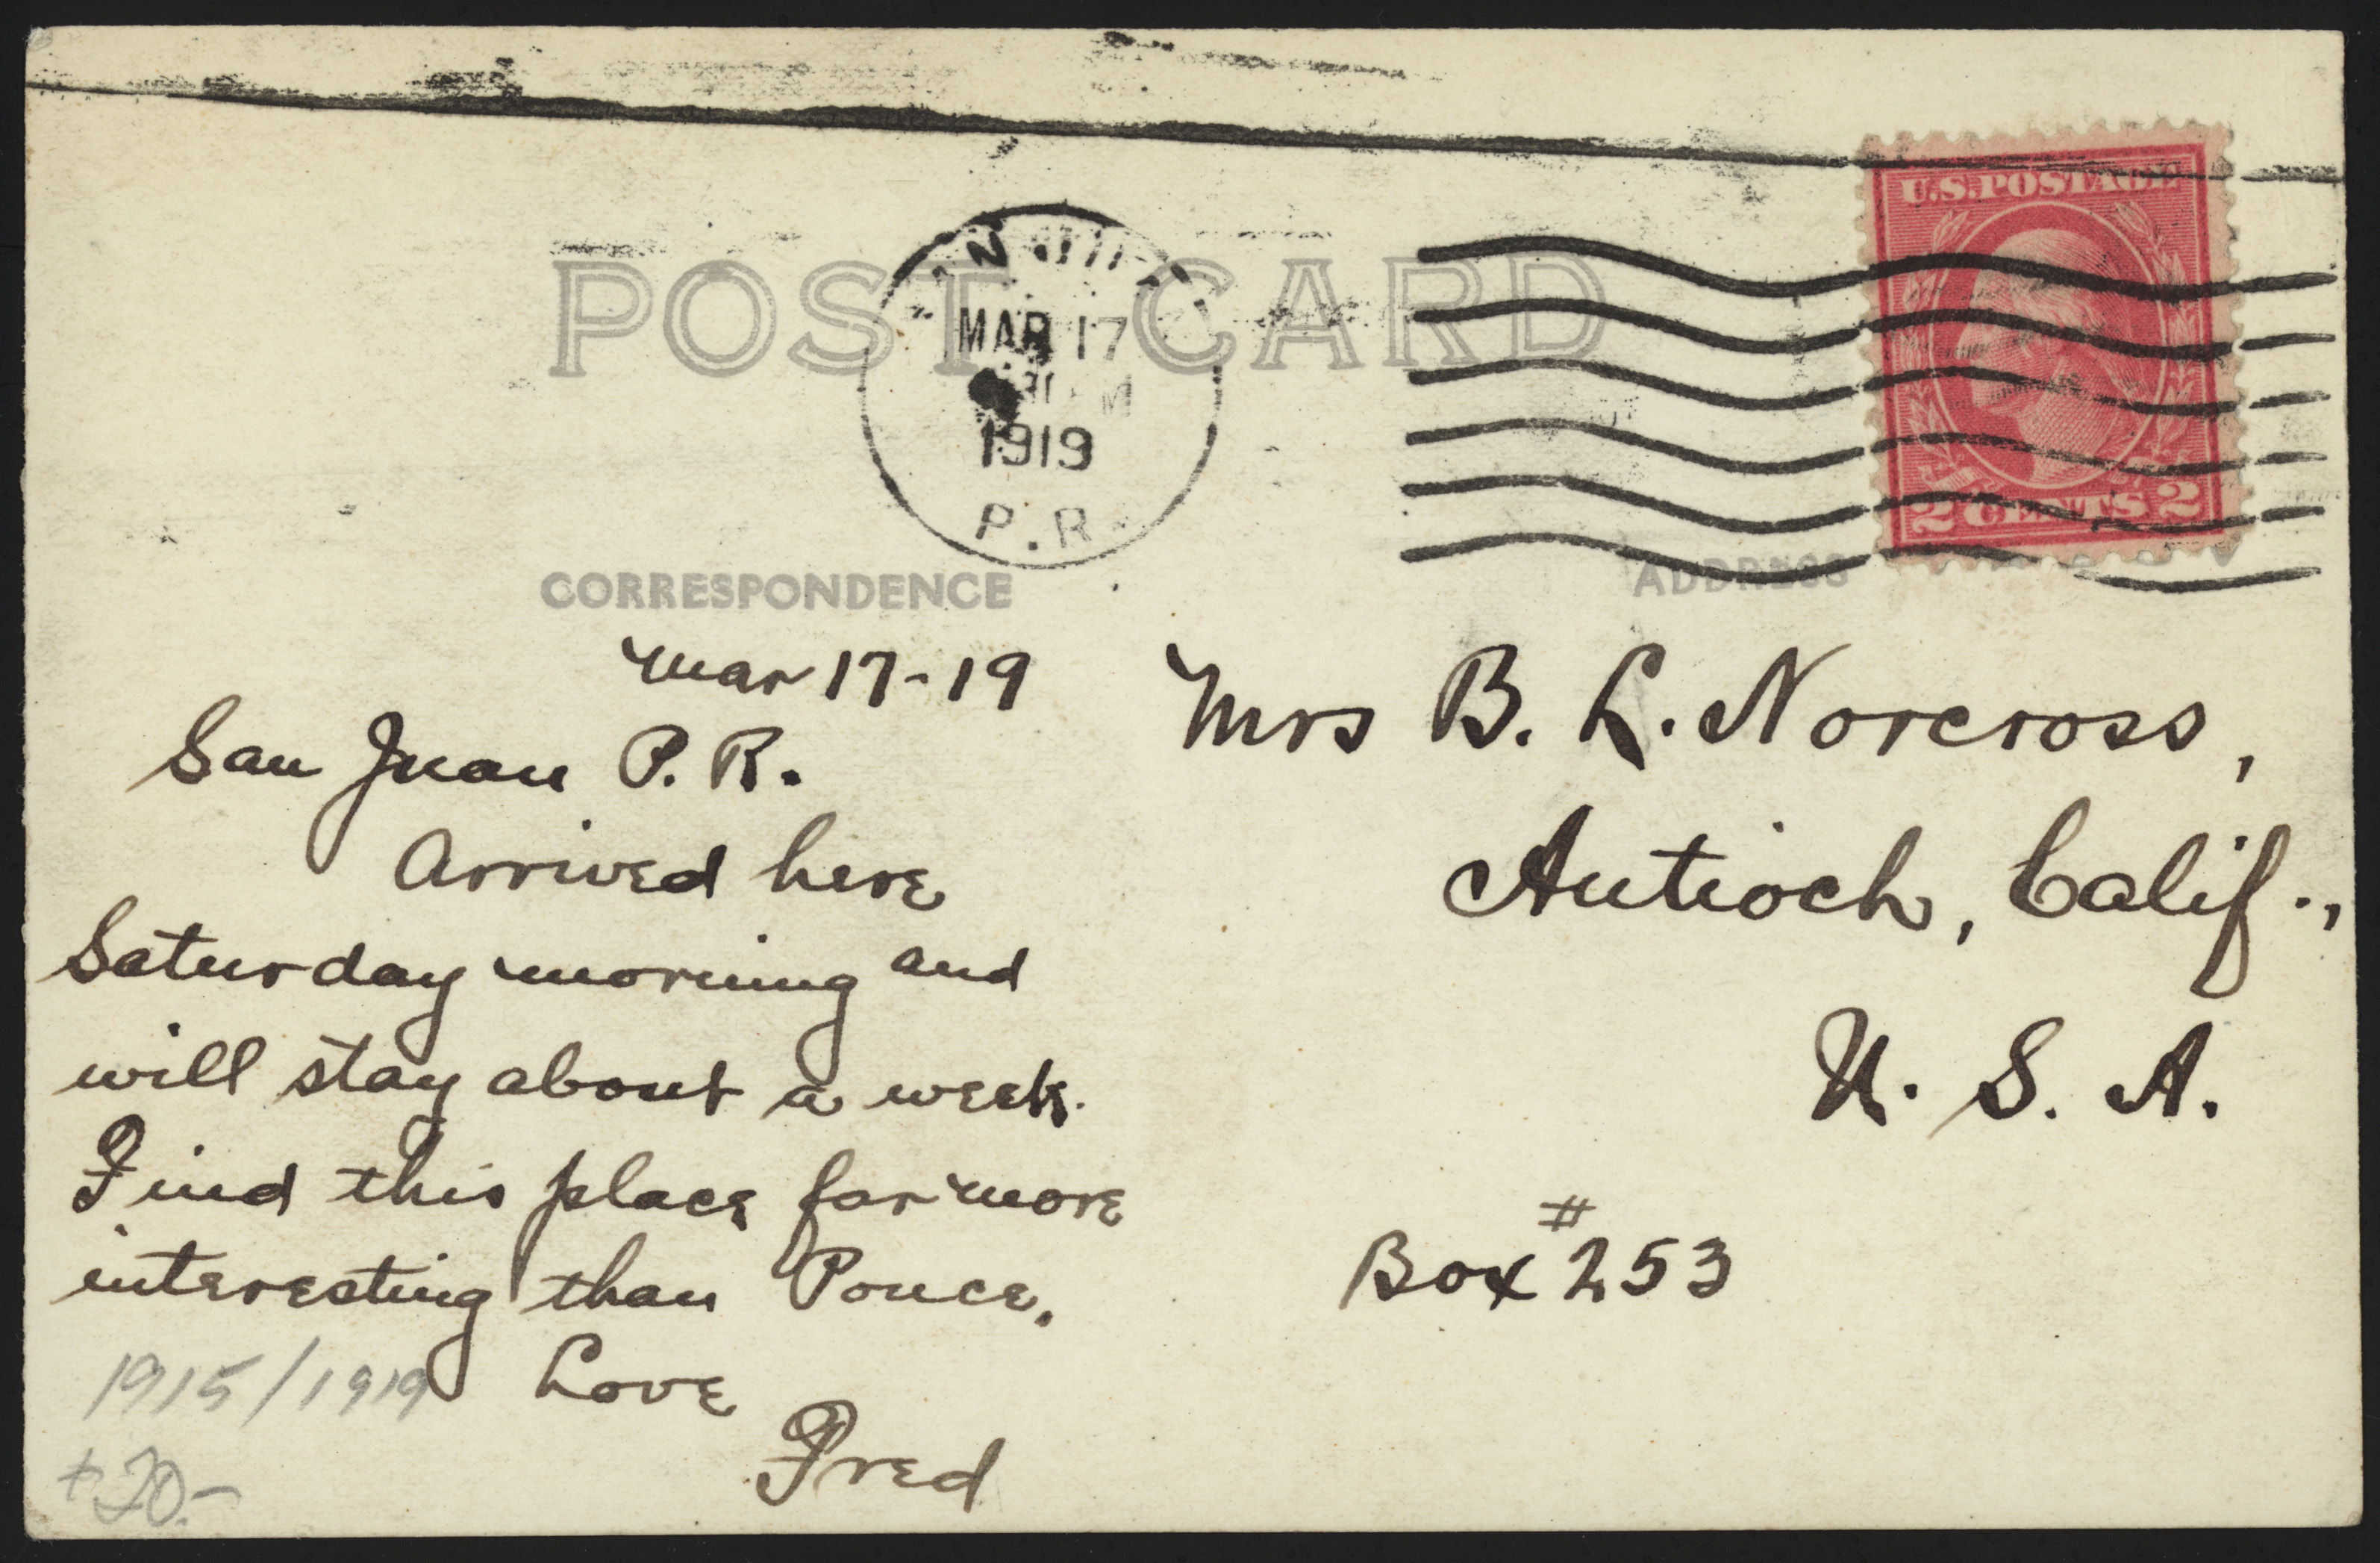 U.S. POSTAGE
2 CENTS 2
POST CARD
MAR 17
1919
P.R.
CORRESPONDENCE
ADDRESS
Mar 17-19
San Juan P. R.
Arrived here
Saturday morning and
will stay about a week.
Find this place far more
interesting than Ponce.
Love
Fred
1915/1919
20.-
Mrs B. L. Norcross,
Antioch, Calif.,
U. S. A.
Box #253